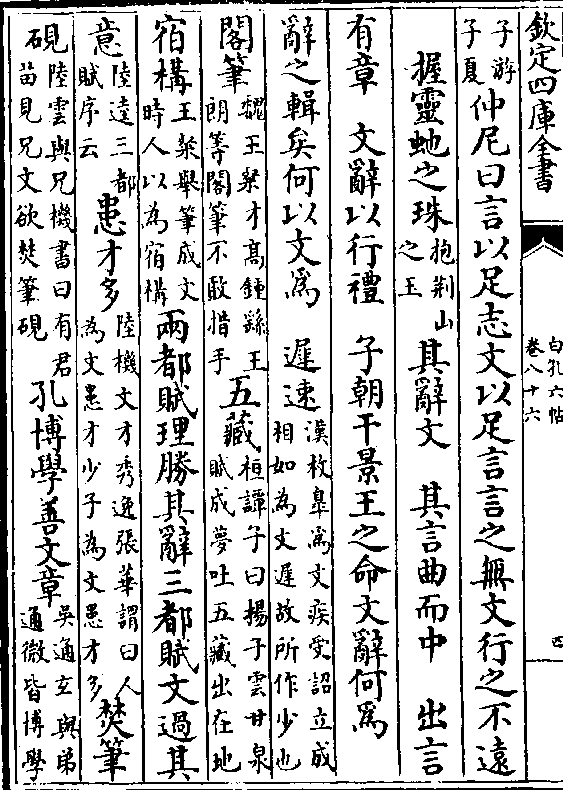 欽定四庫全書
白孔六帖
卷八十六
四
子游子夏仲尼曰言以足志文以足言言之無文行之不遠
握靈虵之珠抱荆山之玉其辭文 其言曲而中 出言
有章 文辭以行禮 子朝干景王之命文辭何爲
辭之輯矣何以文爲 遲速漢枚臯爲文疾受詔立成相如為文遲故所作少也
閣筆魏王粲才髙鍾繇王朗等閣筆不敢措手五藏桓譚子曰揚子雲甘泉賦成夢吐五藏出在地
宿構王粲舉筆成文時人以為宿構兩都賦理勝其辭三都賦文過其
意陸逵三都賦序云患才多陸機文才秀逸張華謂曰人為文患才少子為文患才多焚筆
硯陸雲與兄機書曰有君苗見兄文欲焚筆硯孔博學善文章吳通玄與弟通微皆博學